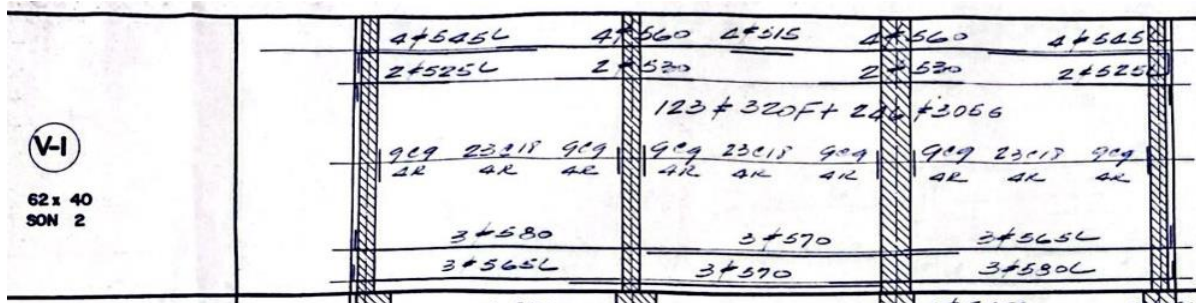 4#545L 4#560 4#515 4#560 4#545
2#525L 2#530 2#530 2#525L
123#320F+ 246#305G
V-1
9C9 23C18 9C9 9C9 23C18 9C9 9C9 23C18 9C9
4R 4R 4R 4R 4R 4R 4R 4R 4R
62x 40
SON 2
3#580 3#570 3#565L
3#565L 3#570 3#580L